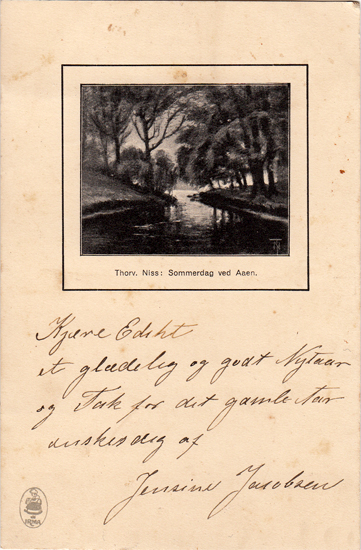 Thorv. Niss: Sommerdag ved Aaen.
Kjære Edikt
et glædelig og godt Nytaar
og Tak for det gamle Aar
ønskes dig af
Jensine Jacobsen
IRMA